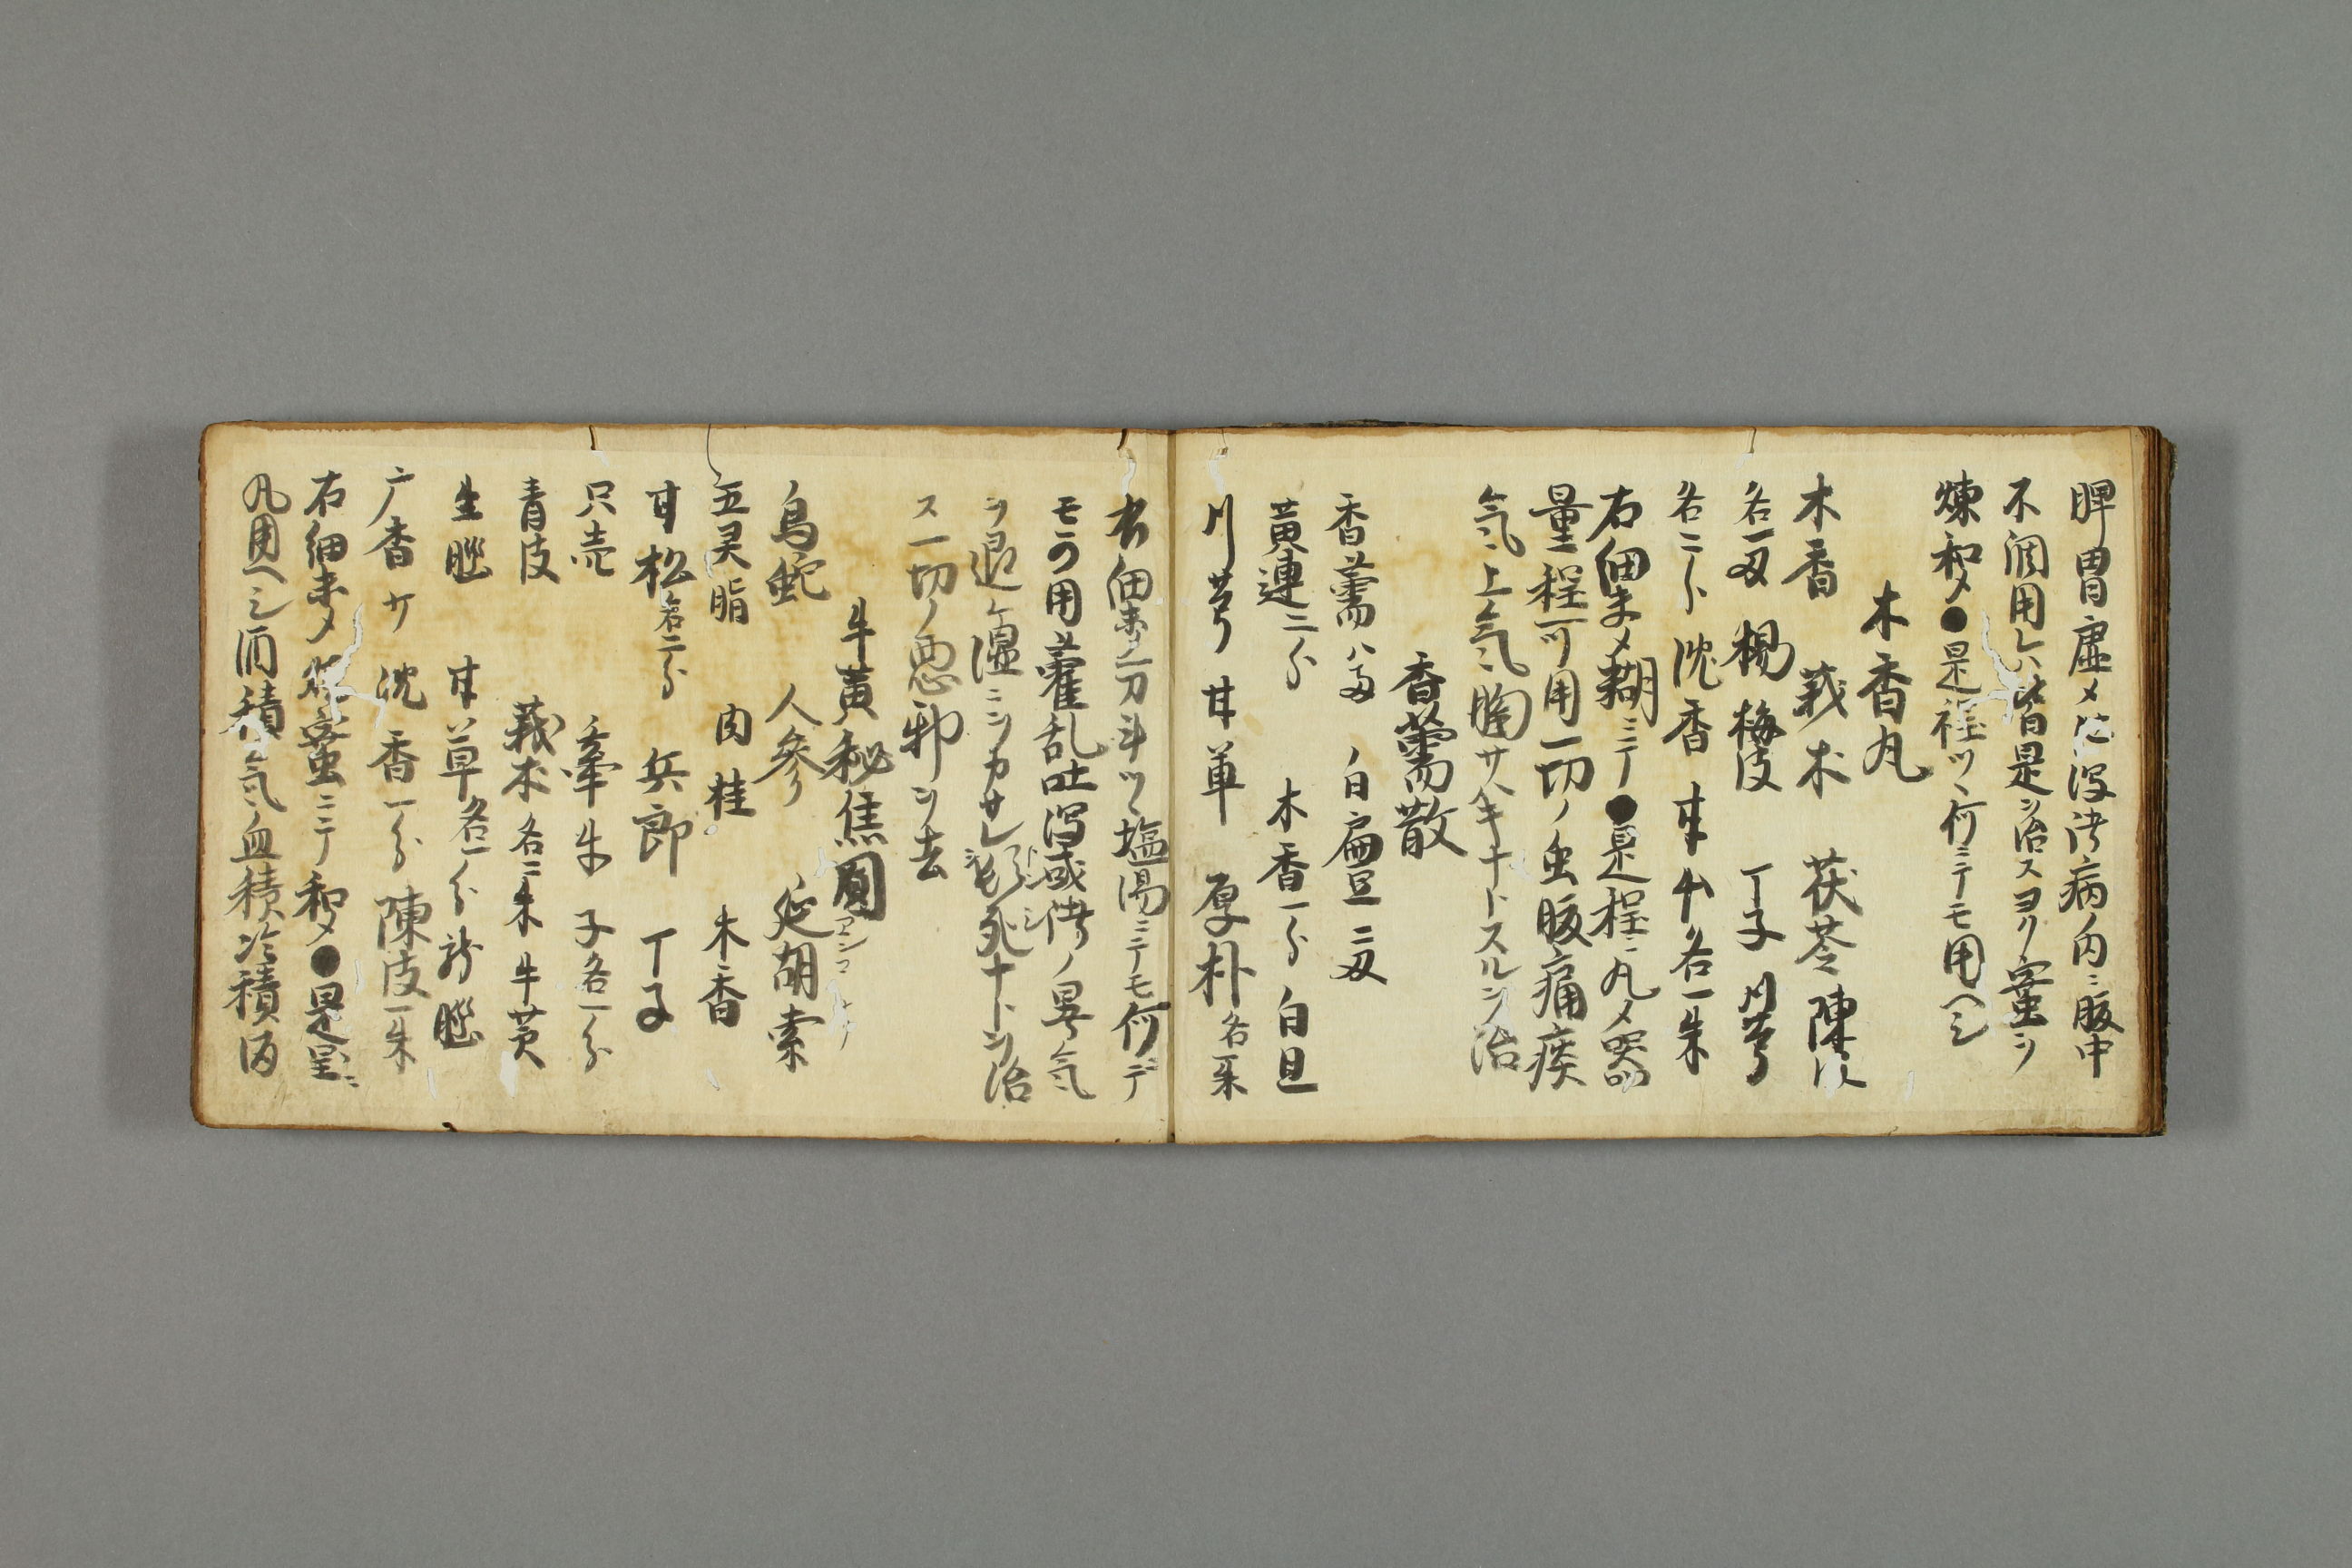 脾胃虚メ泄瀉諸病ノ内ニ腹中
不調用レハ皆是ヲ治スヨリ蜜ヲ
煉和メ●是程ツヽ何ニテモ用ヘシ
木香丸
木香 莪朮 茯苓 陳皮
各一匁 楊梅皮 丁子 川芎
各二分 沈香 各一朱
右細末メ糊ニテ●是程ニ丸メ
量程可用一切ノ虫腹痛痰
気上気胸サハキナトスルヲ治
香薷散
香薷八匁 白扁豆二匁
黄連二分 木香一分 白旦
川芎 甘草 厚朴各朱
右細末一刀斗ツヽ塩湯ニテモ何デ
モ可用藿乱吐瀉或諸ノ暑気
ヲ退ケ湿ニヲカサレ死ナトヲ治
ス一切ノ悪邪ヲ去
牛黄秘焦圓
烏蛇 人參 延胡索
五灵脂 肉桂 木香
甘松各二分 兵郎 丁子
只壳 牽牛子各一分
青皮 莪朮各二朱 牛黄
生脳 甘草各一分 龍脳
广香ケ 沈香一分 陳皮一朱
右細末メ煉蜜ニテ和メ●是程ニ
丸用ヘシ酒積気血積冷積